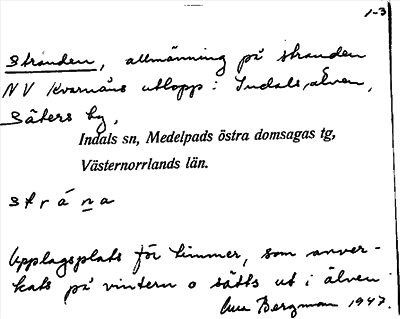 1-3
Stranden, allmänning på stranden
NV Kvarnåns utlopp i Indalsälven,
Säters by,
Indals sn, Medelpads östra domsagas tg,
Västernorrlands län.
strána
Upplagsplats för timmer, som anver-
kats på vintern o sätts ut i älven
Bergman 1947.